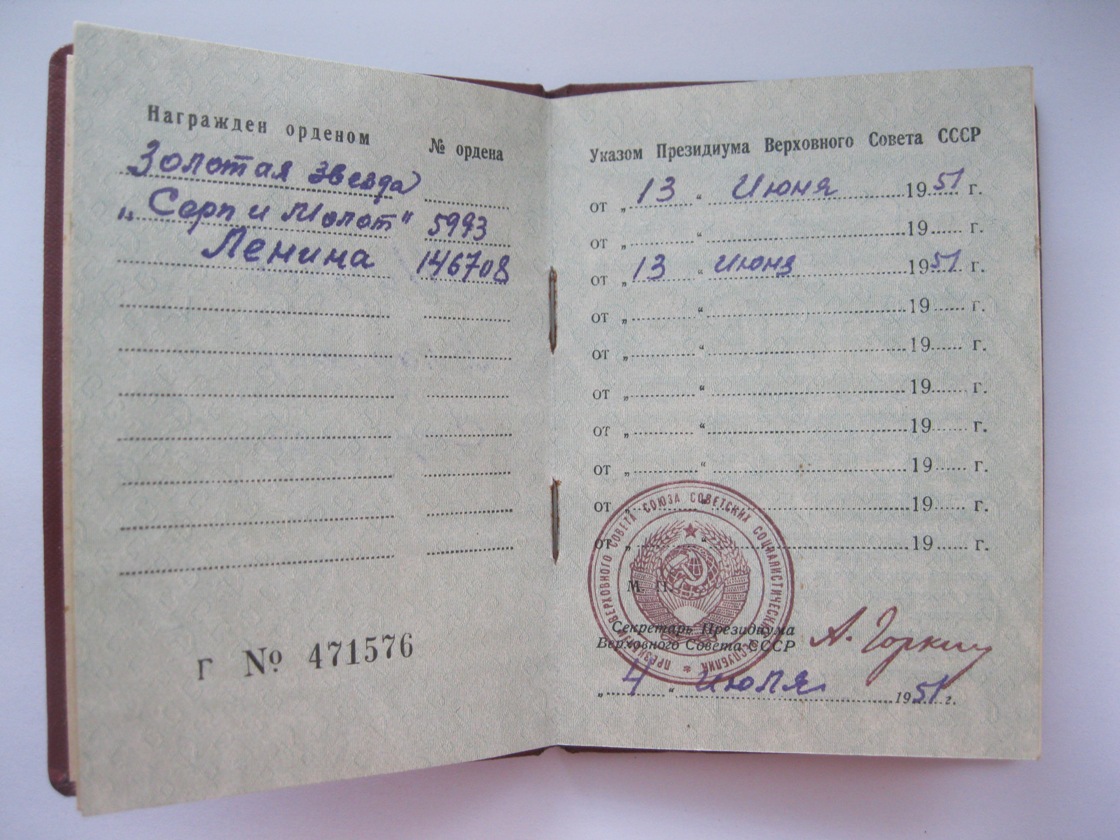 Награжден орденом № ордена
Золотая звезда
„Серп и Молот" 5993
Ленина 146708
Г № 471576
Указом Президиума Верховного Совета СССР
от „ 13 " Июня 1951 г.
от „ " 19 г.
от „ 13 " Июня 1951 г.
от „ " 19 г.
от „ " 19 г.
от „ " 19 г.
от „ " 19 г.
от „ " 19 г.
от „ " 19 г.
от „ " 19 г.
ПРЕЗИДИУМ ВЕРХОВНОГО СОВЕТА СОЮЗА СОВЕТСКИХ СОЦИАЛИСТИЧЕСКИХ РЕСПУБЛИК
М. П.
Секретарь Президиума
Верховного Совета СССР А. Горкин
„ 4 " Июля 1951 г.